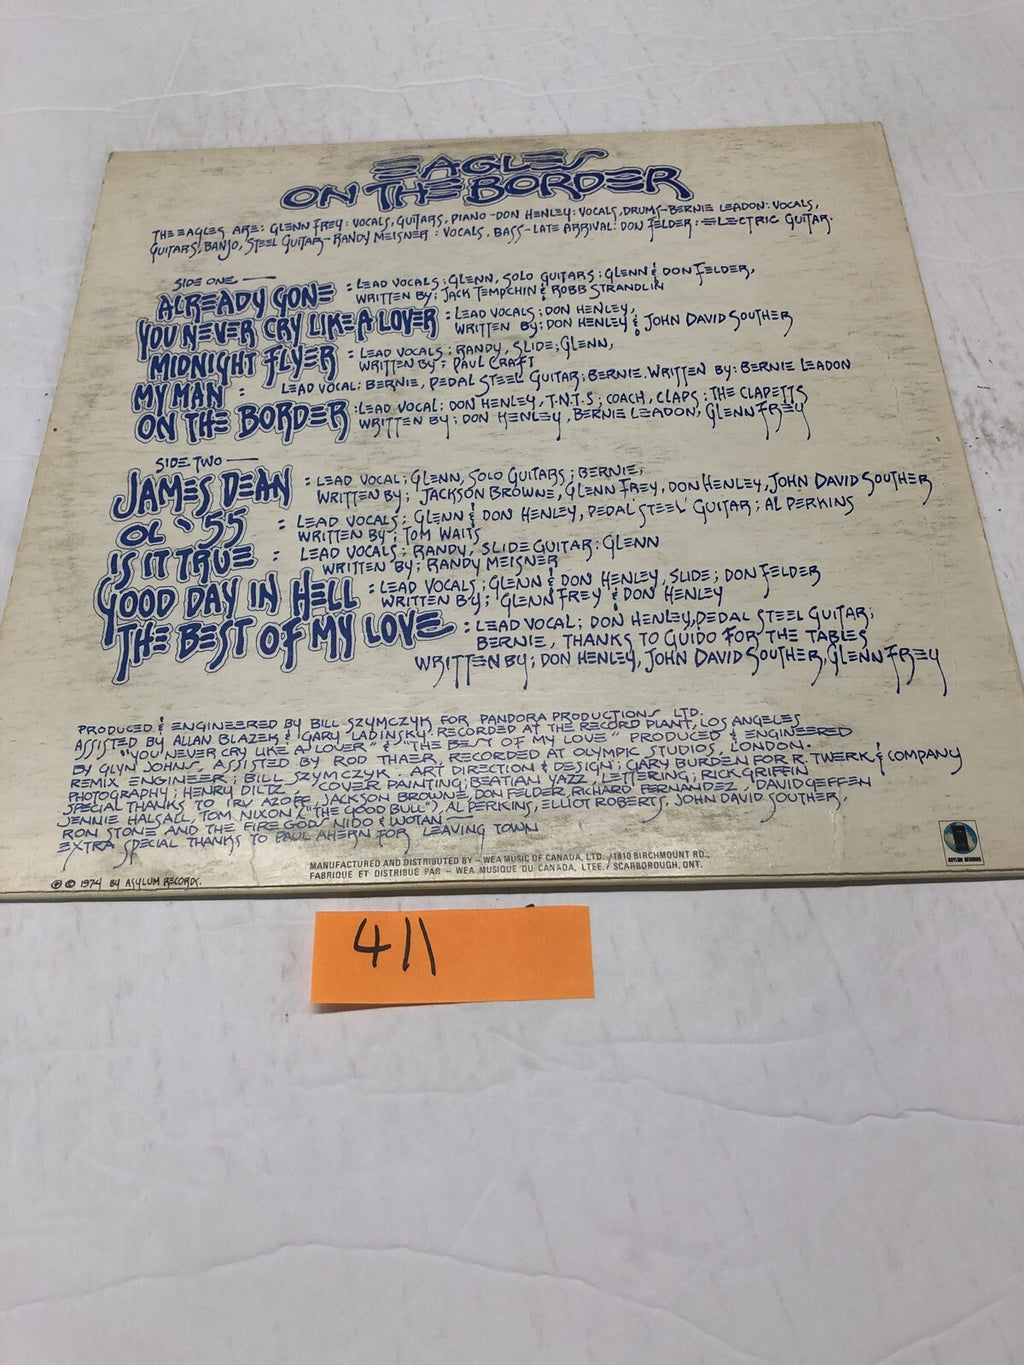 EAGLES
ON THE BORDER
THE EAGLES ARE: GLENN FREY: VOCALS, GUITARS, PIANO - DON HENLEY: VOCALS, DRUMS - BERNIE LEADON: VOCALS,
GUITARS, BANJO, STEEL GUITAR - RANDY MEISNER: VOCALS, BASS - LATE ARRIVAL: DON FELDER: ELECTRIC GUITAR.
SIDE ONE
ALREADY GONE : LEAD VOCALS; GLENN, SOLO GUITARS; GLENN & DON FELDER,
WRITTEN BY; JACK TEMPCHIN & ROBB STRANDLIN
YOU NEVER CRY LIKE A LOVER : LEAD VOCALS; DON HENLEY,
WRITTEN BY; DON HENLEY & JOHN DAVID SOUTHER
MIDNIGHT FLYER : LEAD VOCALS; RANDY, SLIDE; GLENN,
WRITTEN BY; PAUL CRAFT
MY MAN : LEAD VOCAL; BERNIE, PEDAL STEEL GUITAR; BERNIE. WRITTEN BY: BERNIE LEADON
ON THE BORDER : LEAD VOCAL; DON HENLEY, T.N.T.S; COACH, CLAPS: THE CLAPETTS
WRITTEN BY; DON HENLEY, BERNIE LEADON, GLENN FREY
SIDE TWO
JAMES DEAN : LEAD VOCAL; GLENN, SOLO GUITARS; BERNIE,
WRITTEN BY; JACKSON BROWNE, GLENN FREY, DON HENLEY, JOHN DAVID SOUTHER
OL '55 : LEAD VOCALS; GLENN & DON HENLEY, PEDAL STEEL GUITAR; AL PERKINS
WRITTEN BY; TOM WAITS
IS IT TRUE : LEAD VOCALS; RANDY, SLIDE GUITAR: GLENN
WRITTEN BY; RANDY MEISNER
GOOD DAY IN HELL : LEAD VOCALS; GLENN & DON HENLEY, SLIDE; DON FELDER
WRITTEN BY; GLENN FREY & DON HENLEY
THE BEST OF MY LOVE : LEAD VOCAL; DON HENLEY, PEDAL STEEL GUITAR;
BERNIE, THANKS TO GUIDO FOR THE TABLES
WRITTEN BY; DON HENLEY, JOHN DAVID SOUTHER, GLENN FREY
PRODUCED & ENGINEERED BY BILL SZYMCZYK FOR PANDORA PRODUCTIONS LTD.
ASSISTED BY ALLAN BLAZEK & GARY LADINSKY. RECORDED AT THE RECORD PLANT, LOS ANGELES
"YOU NEVER CRY LIKE A LOVER" & "THE BEST OF MY LOVE" PRODUCED & ENGINEERED
BY GLYN JOHNS. ASSISTED BY ROD THAER, RECORDED AT OLYMPIC STUDIOS, LONDON.
REMIX ENGINEER; BILL SZYMCZYK. ART DIRECTION & DESIGN; GARY BURDEN FOR R. TWERK & COMPANY
PHOTOGRAPHY; HENRY DILTZ. COVER PAINTING; BEATIAN YAZZ, LETTERING; RICK GRIFFIN
SPECIAL THANKS TO IRV AZOFF, JACKSON BROWNE, DON FELDER, RICHARD FERNANDEZ, DAVID GEFFEN
JENNIE HALSALL, TOM NIXON ("THE GOOD BULL"), AL PERKINS, ELLIOT ROBERTS, JOHN DAVID SOUTHER,
RON STONE AND THE FIRE GODS NIDO & WOTAN
EXTRA SPECIAL THANKS TO PAUL AHERN FOR LEAVING TOWN
MANUFACTURED AND DISTRIBUTED BY - WEA MUSIC OF CANADA, LTD. / 1810 BIRCHMOUNT RD.,
FABRIQUE ET DISTRIBUÉ PAR - WEA MUSIQUE DU CANADA, LTEE. / SCARBOROUGH, ONT.
℗ © 1974 BY ASYLUM RECORDS.
ASYLUM RECORDS
411